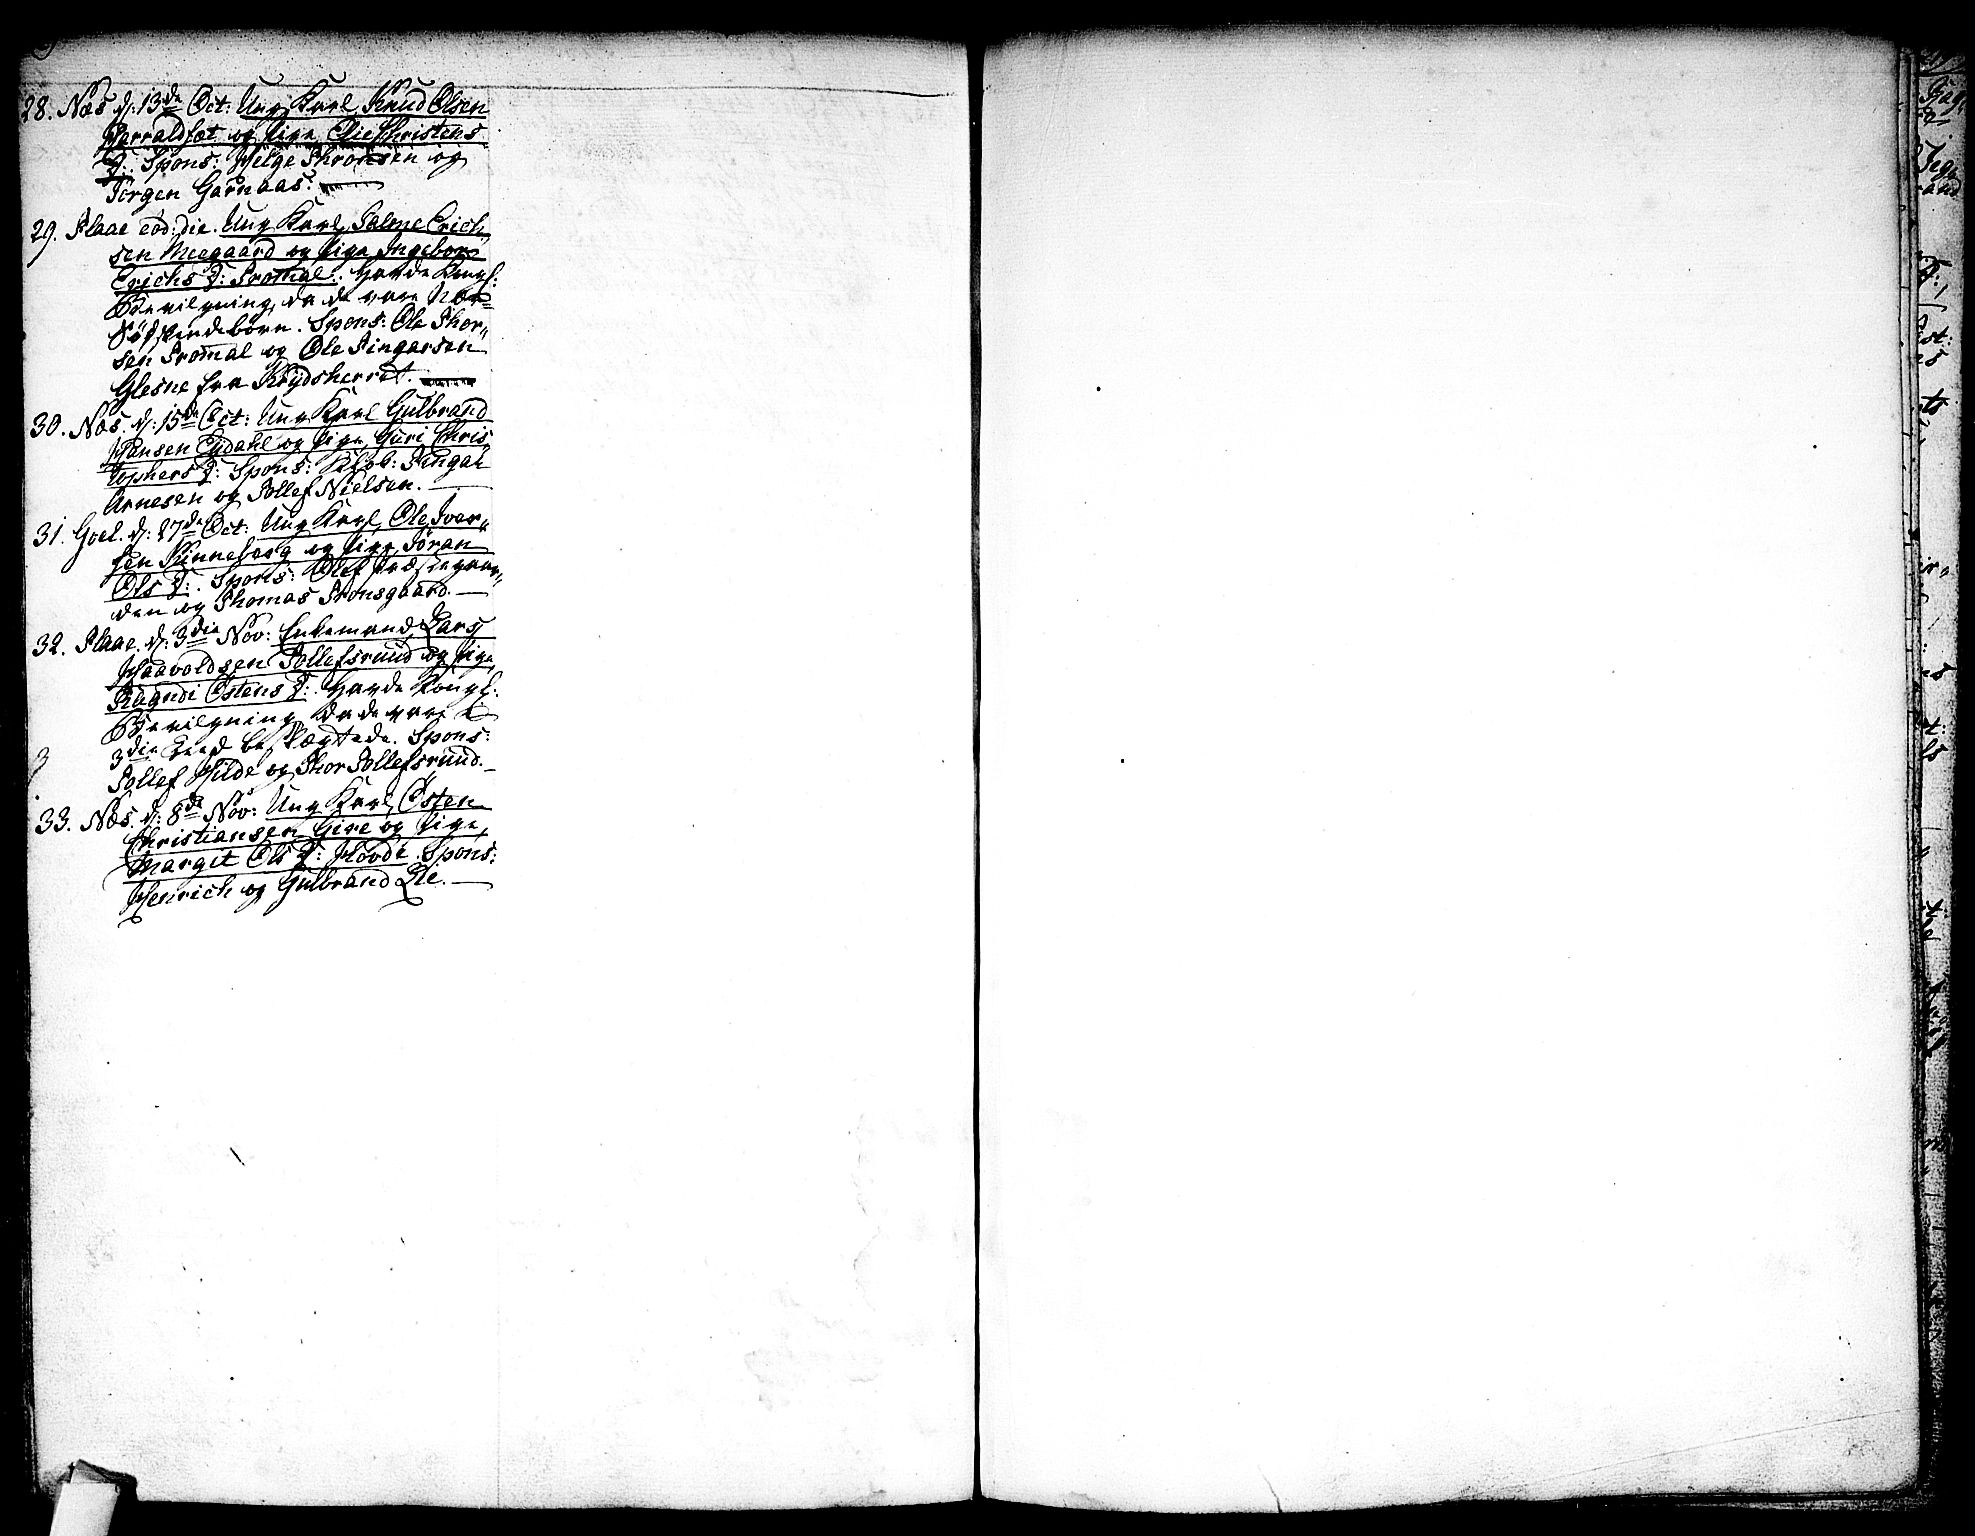 28. Næs d: 13de Oct: Ung Karl Knud Olsen
og Pige Christens
D: Spons: Helge Thronsen og
Jørgen Garnaas.
29. Flaae eod: die. Ung Karl Palme Erich
sen Meegaard og Pige Ingebor
Erichs D: Trommal. Havde Kongl:
Bevilgning, da de vare Nær
Södskendebörn. Spons: Ole Thor-
sen Trommal og Ole Fingarsen
Glesne fra Krydsherret.
30. Næs. d: 15de Oct: Ung Karl Gulbrand
Hansen Eydahl og Pige Guri Chris
tophers D: Spons: Kl: Fingal
Arnesen og Tollef Nielsen.
31. Goel. d: 27de Oct: Ung Karl Ole Iver-
sen Kinneberg og Pige Jöran
Ols D: Spons: Ole Præstegaar-
den og Thomas Tronsgaard.
32. Flaae. d: 3die Nov: Enkemand Lars
Haavoldsen Tollefsruud og Pige
Ragndi Östens D: Havde Kongl:
Bevilgning, da de vare i
3die Leed beslægtede. Spons:
Tollef Hilde og Thor Tollefsruud.
33. Næs. d: 8de Nov: Ung Karl Östen
Christiansen Gire og Pige
Margit Ols D: Hovde. Spons:
Henrich og Gulbrand Lie.